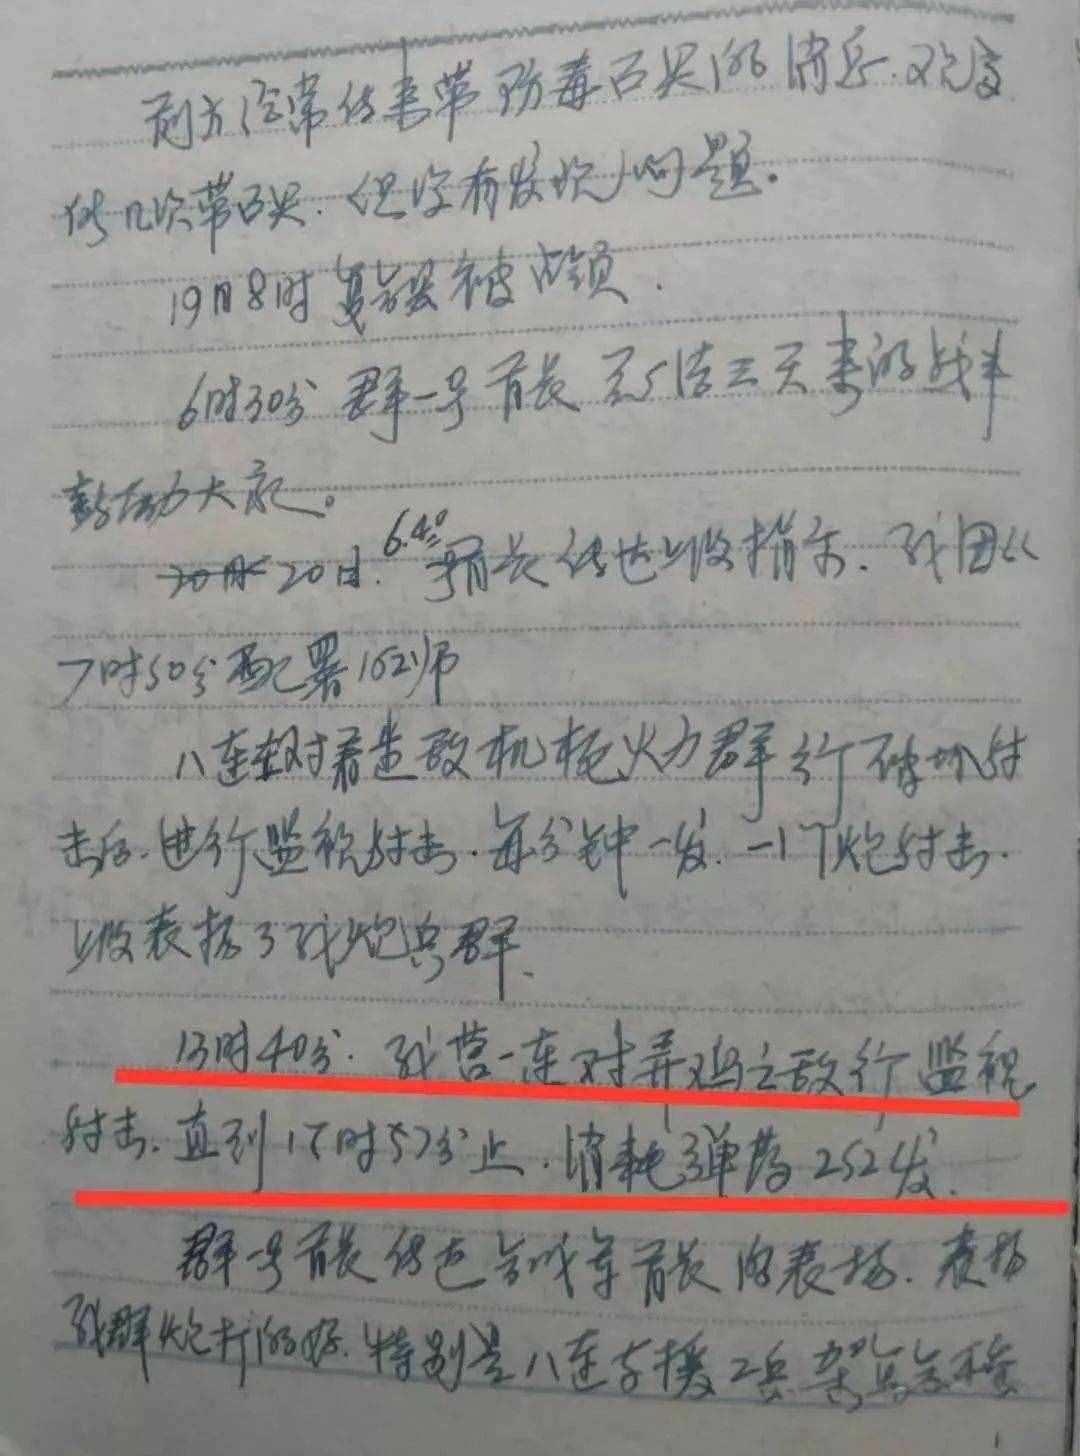 前方经常传来带防毒口罩的消息.
传几次带口罩.但没有发现问题.
19日8时 被占领.
6时30分 群一号首长 三天来的战斗
鼓动大家。
20日. 6.40 首长传达上级指示.我团从
7时50分配署162师
八连对着敌机枪火力群行破坏射
击后.进行监视射击.每分钟一发.一门炮射击.
上级表扬了我炮兵群.
13时40分.我营一连对弄鸡之敌行监视
射击.直到17时57分止.消耗弹药252发.
群一号首长传达 首长的表扬.表扬
我群炮打的好.特别是八连支援工兵架